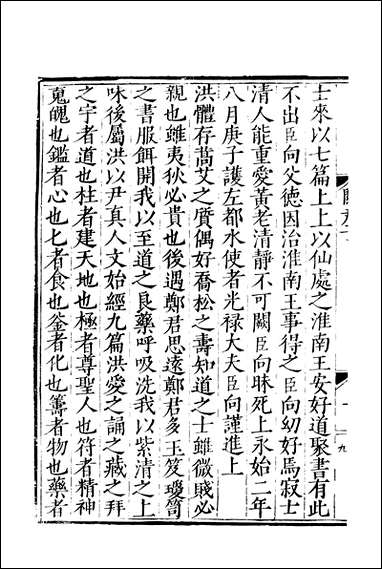 士來以七篇上上以仙處之淮南王安好道聚書有此
不出臣向父德因治淮南王事得之臣向幼好焉寂士
清人能重愛黃老清靜不可闕臣向昧死上永始二年
八月庚子護左都水使者光禄大夫臣向謹進上
洪體存蒿艾之質偶好喬松之壽知道之士雖微賤必
親也雖夷秋必貴也後遇鄭君思遠鄭君多玉笈瓊笥
之書服餌開我以至道之良藥呼吸洗我以紫清之上
味後屬洪以尹真人文始經九篇洪愛之誦之藏之拜
之宇者道也柱者建天地也極者尊聖人也符者精神
䰟魄也鑑者心也匕者食也釜者化也籌者物也藥者
九